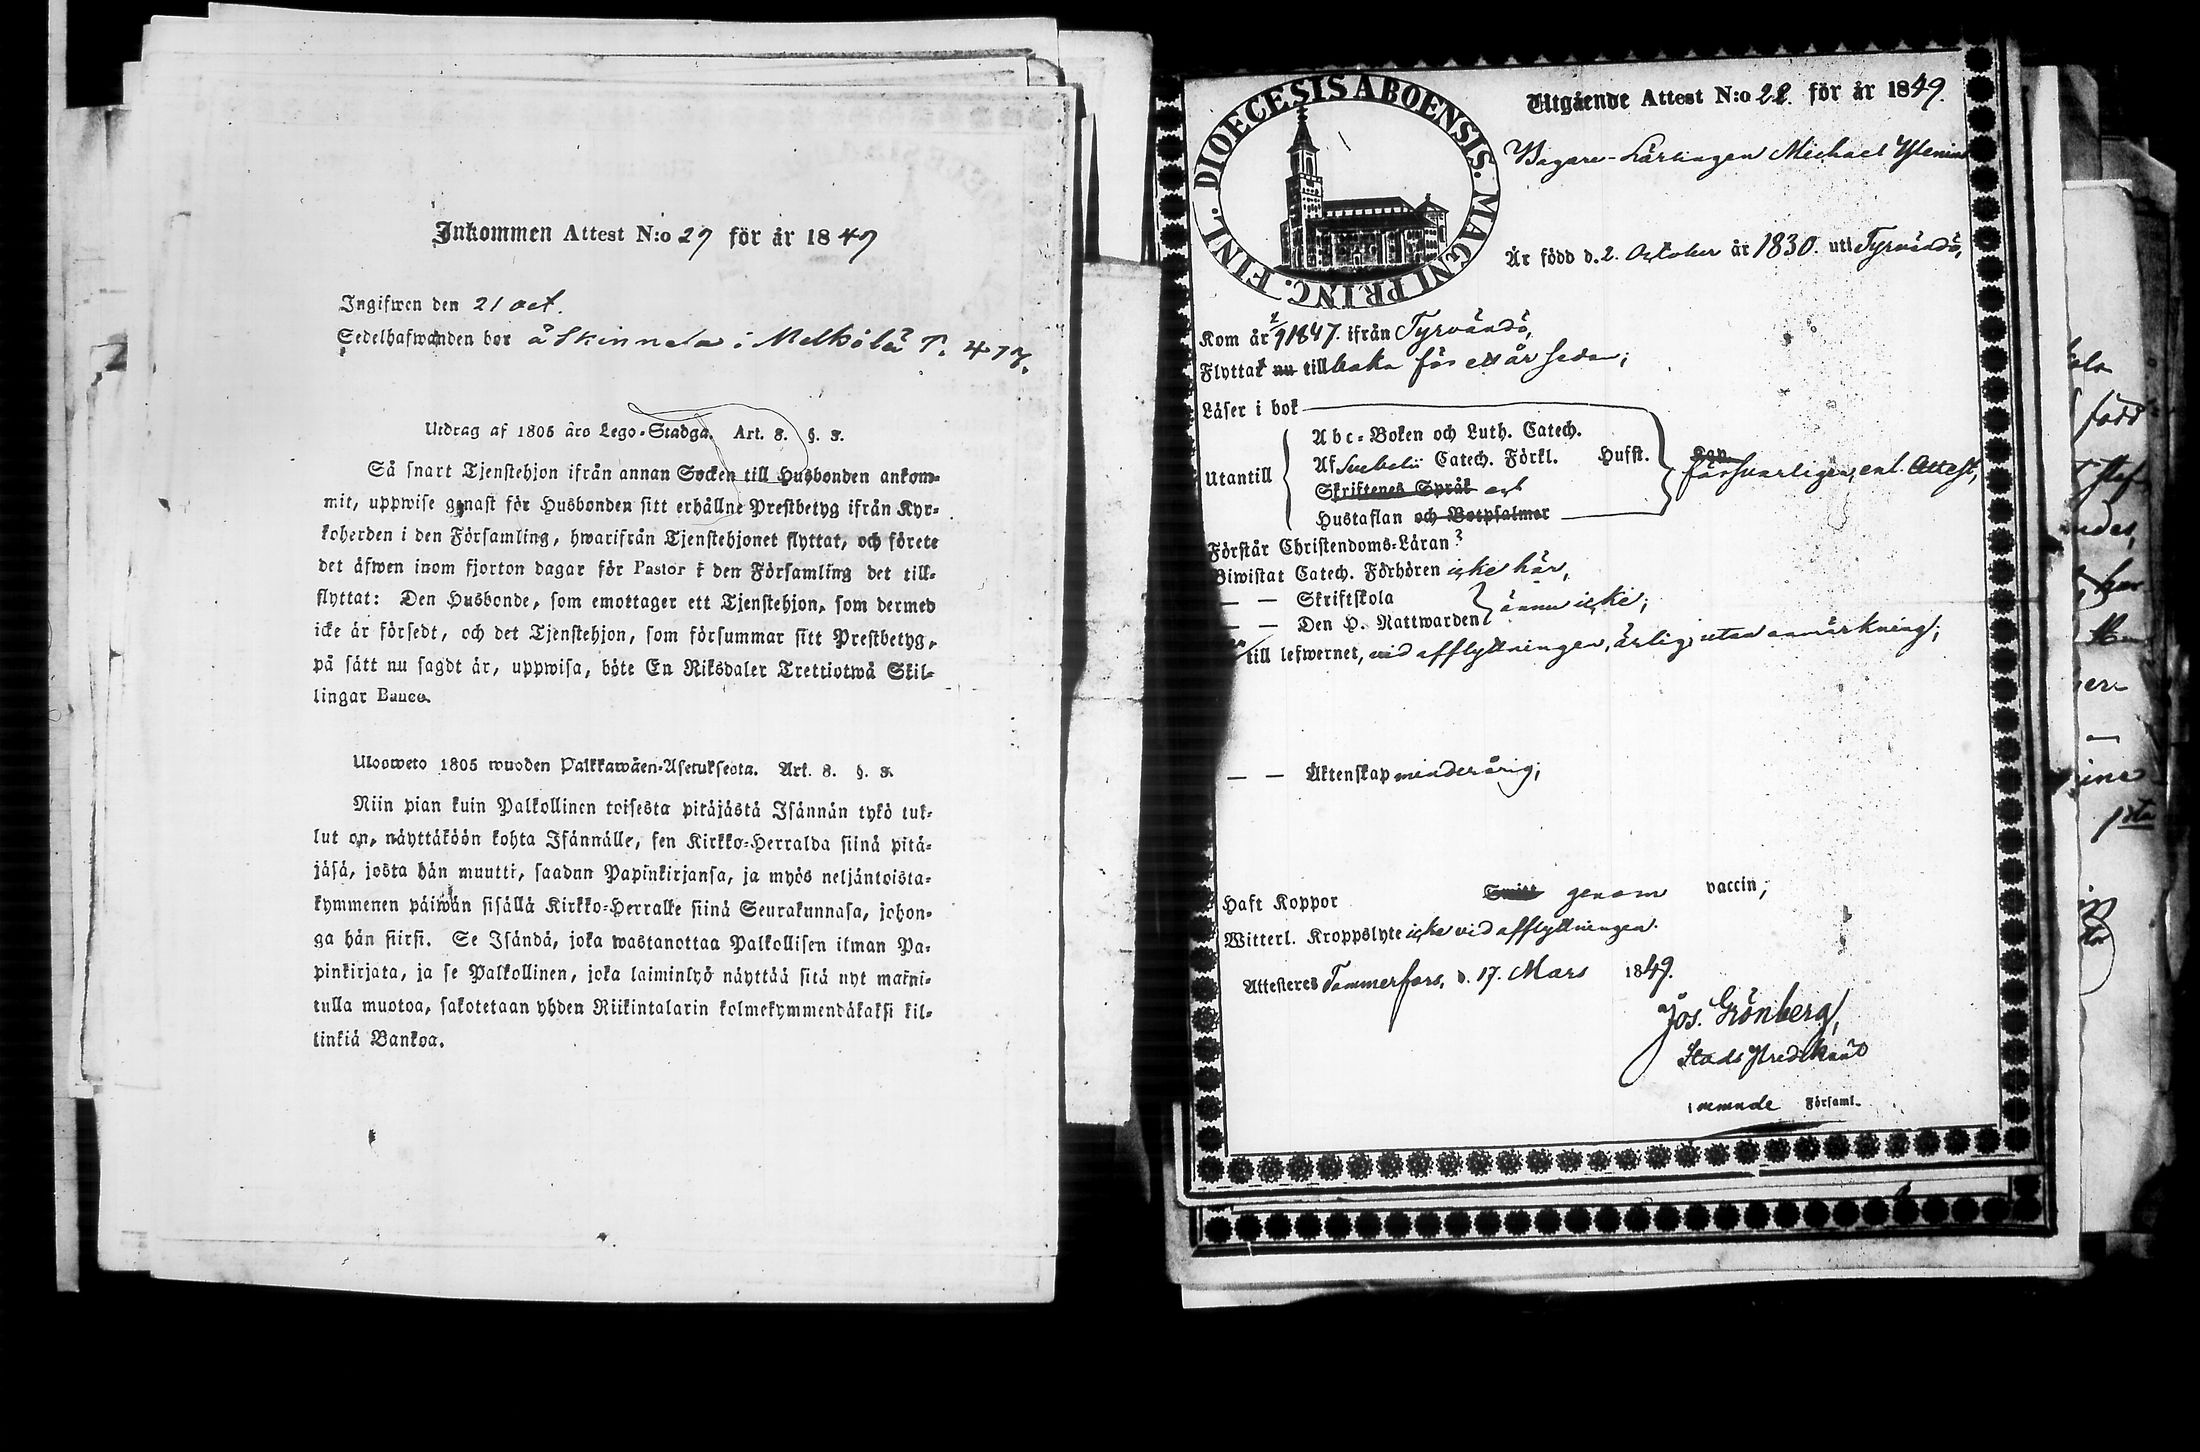 Inkommen Attest N:o 27 för år 1849
Ingifwen den 21 oct.
Sedelhafwanden bor å Skinnala i Melkölä T. 473.
Utdrag af 1805 års Lego-Stadga. Art. 8. §. 3.
Så snart Tjenstehjon ifrån annan Socken till Husbonden ankom-
mit, uppwise genast för Husbonden sitt erhållne Prestbetyg ifrån Kyr-
koherden i den Församling, hwarifrån Tjenstehjonet flyttat, och förete
det äfwen inom fjorton dagar för Pastor i den Församling det till-
flyttat: Den Husbonde, som emottager ett Tjenstehjon, som dermed
icke är försedt, och det Tjenstehjon, som försummar sitt Prestbetyg,
på sätt nu sagdt är, uppwisa, böte En Riksdaler Trettiotwå Skil-
lingar Banco.
Ulosweto 1805 wuoden Palkkawäen-Asetuksesta. Art. 8. §. 3.
Niin pian kuin Palkollinen toisesta pitäjästä Isännän tykö tul-
lut on, näyttäköön kohta Isännälle, sen Kirkko-Herralda siinä pitä-
jäsä, josta hän muutti, saadun Papinkirjansa, ja myös neljäntoista-
kymmenen päiwän sisällä Kirkko-Herralle siinä Seurakunnasa, johon-
ga hän siirsi. Se Isändä, joka wastanottaa Palkollisen ilman Pa-
pinkirjata, ja se Palkollinen, joka laiminlyö näyttää sitä nyt maini-
tulla muotoa, sakotetaan yhden Riikintalarin kolmekymmendäkaksi kil-
linkiä Bankoa.
DIOECESIS ABOENSIS. MAGNI PRINC. FINL.
Utgående Attest N:o 28. för år 1849.
Bagare-Lärlingen Michael
Är född d. 2. October år 1830. uti Tyrvändö,
Kom år 2/9 1847. ifrån Tyrvändö,
Flyttat nu tillbaka för ett år sedan;
Läser i bok
Abc-Boken och Luth. Catech.
Utantill Af Svebelii Catech. Förkl. Husst. försvarligen, enl. Attest,
Skriftenes Språk och
Hustaflan och Botpsalmer
Förstår Christendoms-Läran?
Biwistat Catech. Förhören icke här,
— — Skriftskola
— — Den H. Nattwarden ännu icke;
till lefwernet, vid afflyttningen, ärlig, utan anmärkning;
— — Äktenskap minderårig;
Haft Koppor genom vaccin,
Witterl. Kroppslyte icke vid afflyttningen.
Attesteres Tammerfors, d. 17. Mars 1849.
Jos. Grönberg,
Stads Predikant
i nemnde Församl.